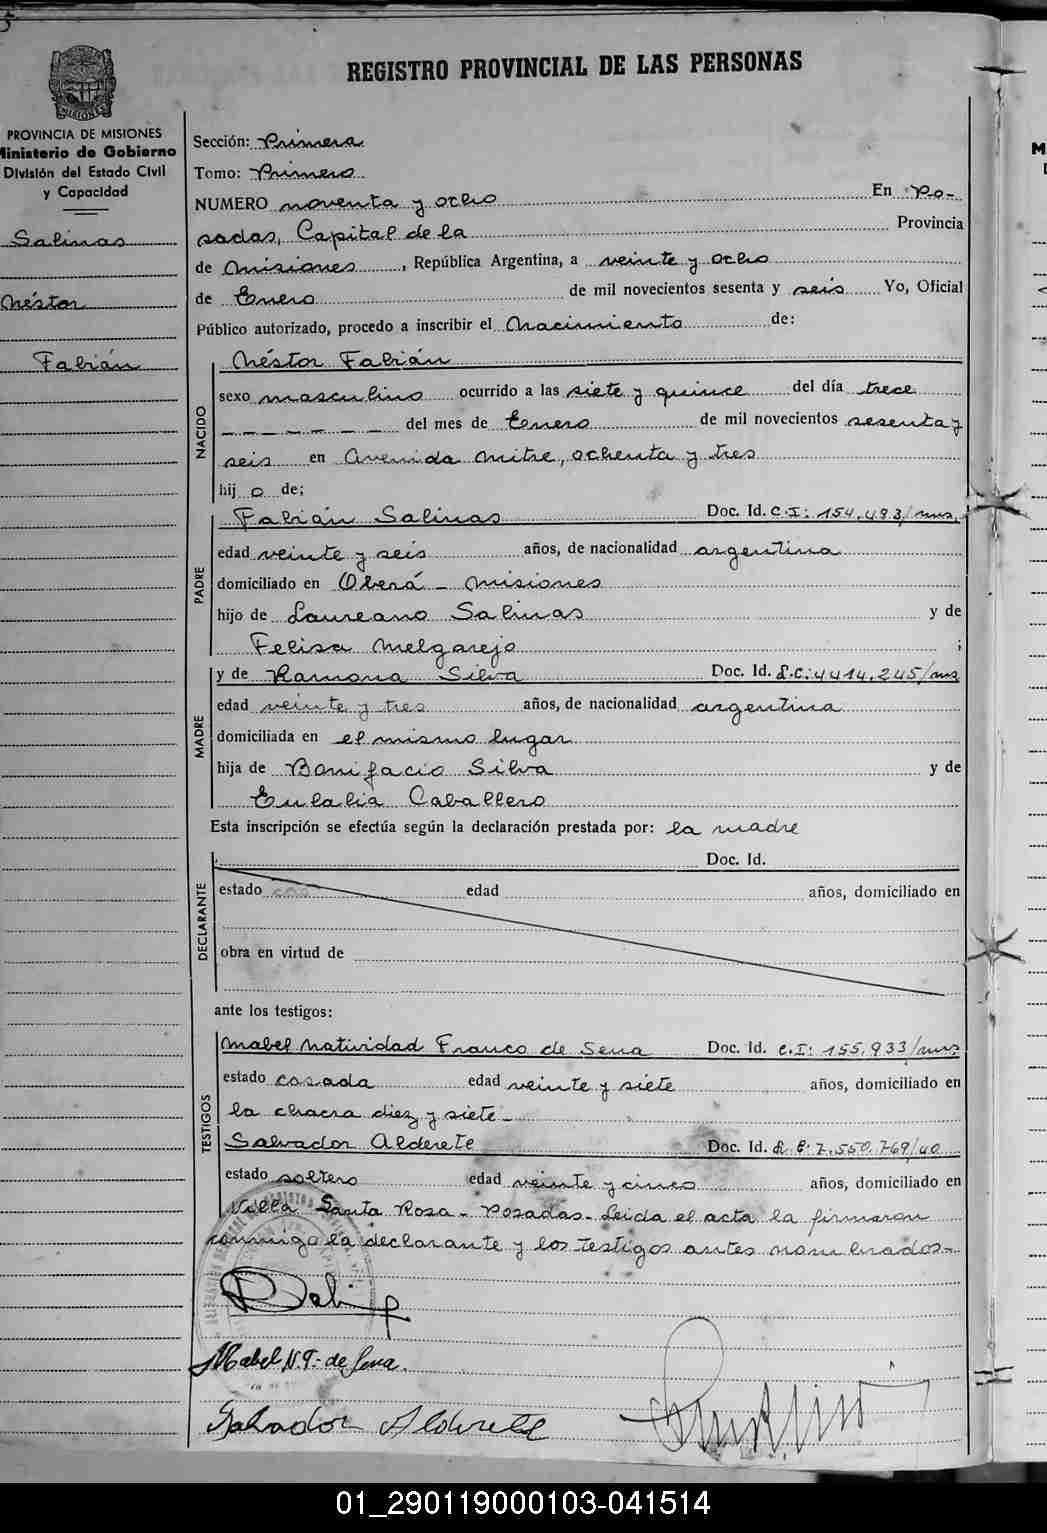 REGISTRO PROVINCIAL DE LAS PERSONAS
MISIONES
PROVINCIA DE MISIONES
Ministerio de Gobierno
División del Estado Civil
y Capacidad
Salinas
Néstor
Fabián
Sección: Primera
Tomo: Primero
NUMERO noventa y ocho En Po-
sadas, Capital de la Provincia
de Misiones, República Argentina, a veinte y ocho
de Enero de mil novecientos sesenta y seis Yo, Oficial
Público autorizado, procedo a inscribir el Nacimiento de:
NACIDO
Néstor Fabián
sexo masculino ocurrido a las siete y quince del día trece
_ _ _ _ _ _ del mes de Enero de mil novecientos sesenta y
seis en Avenida Mitre, ochenta y tres
hij o de:
PADRE
Fabián Salinas Doc. Id. C.I: 154.493/mns.
edad veinte y seis años, de nacionalidad argentina
domiciliado en Oberá - Misiones
hijo de Laureano Salinas y de
Felisa Melgarejo ;
MADRE
y de Ramona Silva Doc. Id. L.C: 4414.245/mns
edad veinte y tres años, de nacionalidad argentina
domiciliada en el mismo lugar
hija de Bonifacio Silva y de
Eulalia Caballero
Esta inscripción se efectúa según la declaración prestada por: la madre
DECLARANTE
Doc. Id.
estado cas edad años, domiciliado en
obra en virtud de
ante los testigos:
TESTIGOS
Mabel Natividad Franco de Sena Doc. Id. C.I: 155.933/mns
estado casada edad veinte y siete años, domiciliado en
la chacra diez y siete-
Salvador Alderete Doc. Id. L.E: 7.550.769/40
estado soltero edad veinte y cinco años, domiciliado en
Villa Santa Rosa - Posadas - Leída el acta la firmaron
conmigo la declarante y los testigos antes nombrados-
Mabel N. F. de Sena.
Salvador Alderete
01_290119000103-041514